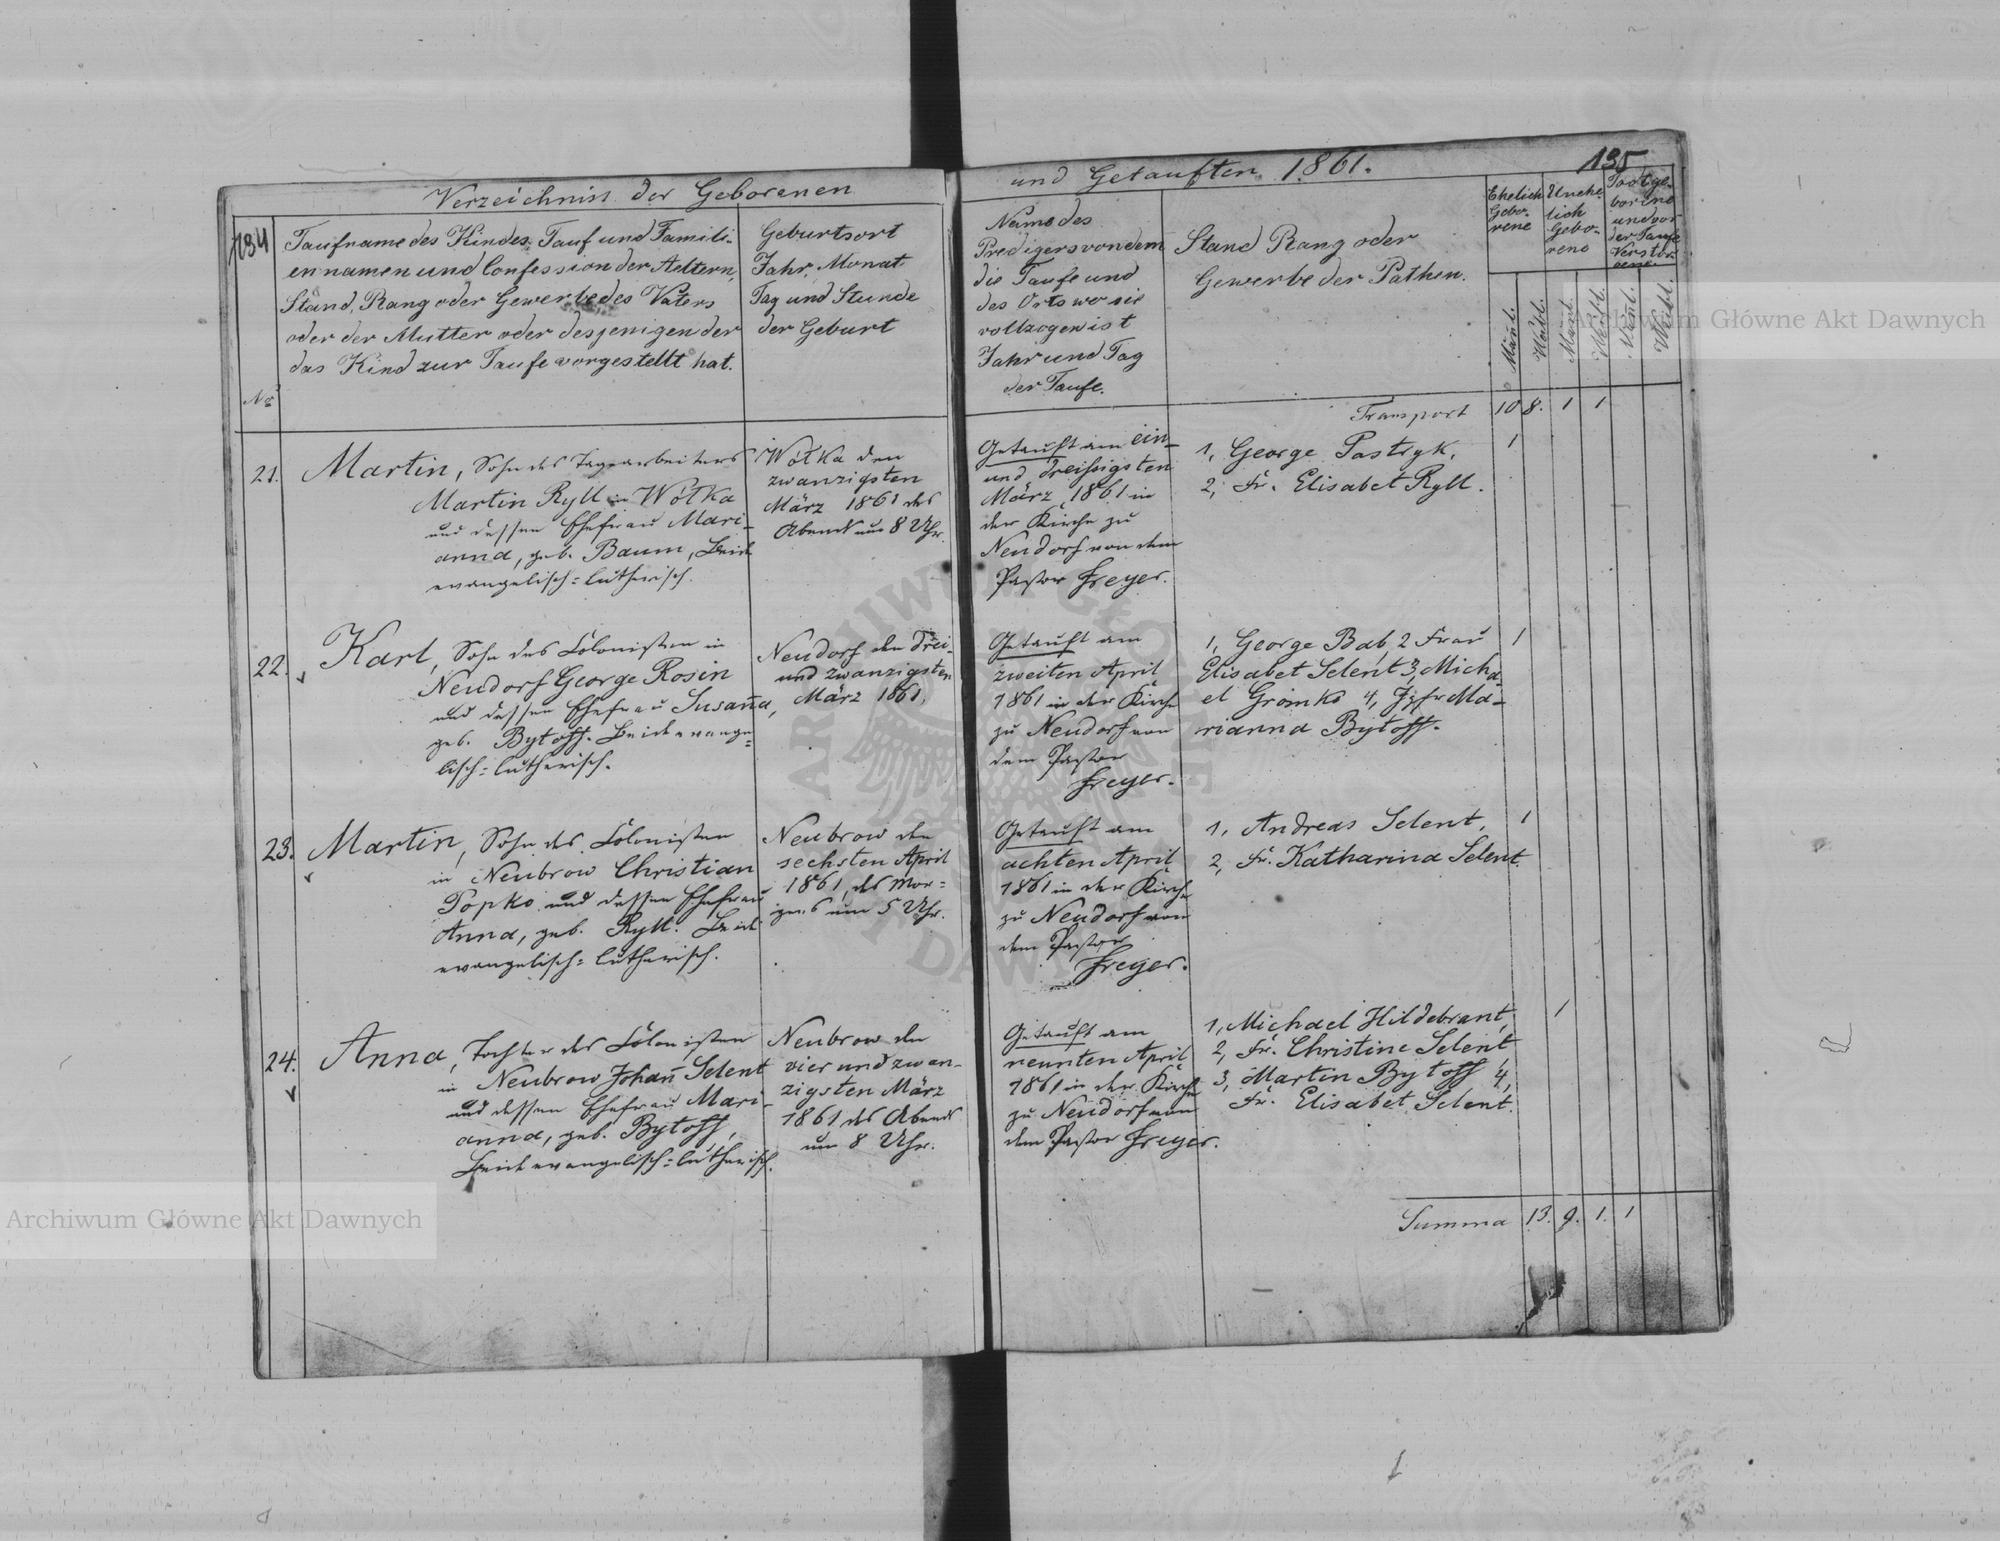 Verzeichniss der Geborenen
134
Taufname des Kindes, Tauf und Famili-
ennamen und Confession der Aeltern,
Stand, Rang oder Gewerbe des Vaters
oder der Mutter oder desjenigen der
das Kind zur Taufe vorgestellt hat.
No
Geburtsort
Jahr, Monat
Tag und Stunde
der Geburt
21.
Martin, Sohn des Tagearbeiters
Martin Ryll in Wolka
und dessen Ehefrau Mari-
anna, geb. Baum, Beide
evangelisch=lutherisch.
Wolka den
zwanzigsten
März 1861 des
Abends um 8 Uhr.
22.
Karl, Sohn des Colonisten in
Neudorf George Rosin
und dessen Ehefrau Susaña,
geb. Bytoff. Beide evange=
lisch=lutherisch.
Neudorf den drei-
und zwanzigsten
März 1861.
23.
Martin, Sohn des Colonisten
in Neubrow Christian
Popko und dessen Ehefrau
Anna, geb. Ryll. Beide
evangelisch=lutherisch.
Neubrow den
sechsten April
1861, des Mor=
gens um 5 Uhr.
24.
Anna, Tochter des Colonisten
in Neubrow Johañ Selent
und dessen Ehefrau Mari-
anna, geb. Bytoff,
Beide evangelisch=lutherisch.
Neubrow den
vier und zwan-
zigsten März
1861 des Abends
um 8 Uhr.
und Getauften 1861.
135
Name des
Predigers von dem
die Taufe und
des Orts wo sie
vollzogen ist
Jahr und Tag
der Taufe.
Stand Rang oder
Gewerbe der Pathen.
Ehelich
Gebo-
rene
Unehe-
lich
Gebo-
rene
Todtge-
borene
und vor
der Taufe
Verstor-
bene.
Mänl.
Weibl.
Mänl.
Weibl.
Mänl.
Weibl.
Transport 10 8. 1 1
Getauft am ein-
und dreißigsten
März 1861 in
der Kirche zu
Neudorf von dem
Pastor Freyer.
1, George Pastryk,
2, Fr. Elisabet Ryll.
1
Getauft am
zweiten April
1861 in der Kirche
zu Neudorf von
dem Pastor
Freyer.
1, George Bab, 2 Frau
Elisabet Selent 3, Micha-
el Gromko 4, Jgfr Ma-
rianna Bytoff.
1
Getauft am
achten April
1861 in der Kirche
zu Neudorf von
dem Pastor
Freyer.
1, Andreas Selent,
2, Fr. Katharina Selent.
1
Getauft am
neunten April
1861 in der Kirche
zu Neudorf von
dem Pastor Freyer.
1, Michael Hildebrant,
2, Fr. Christine Selent
3, Martin Bytoff 4,
Fr. Elisabet Selent.
1
Summa 13. 9. 1. 1
Archiwum Główne Akt Dawnych
Archiwum Główne Akt Dawnych
ARCHIWUM GŁÓWNE AKT DAWNYCH